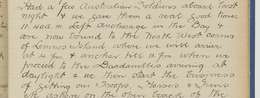 Had a few Australian Soldiers aboard last
night & we gave them a real good time.
11.40 a.m. left anchorage in the Bay &
are now bound to the North West corner
of Lemnos Island where we will arrive
at 4 & anchor till 11 pm when we
proceed to the Dardanelles arriving at
daylight & we then start the business
of getting our Troops, Horses & Guns
left ashore on the other